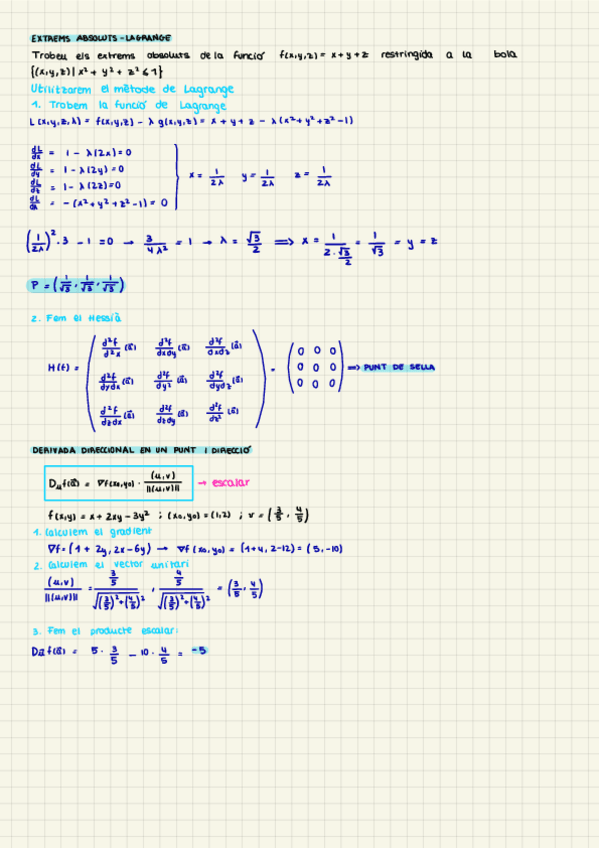 EXTREMS ABSOLUTS - LAGRANGE
Trobeu els extrems absoluts de la funció f(x,y,z) = x + y + z restringida a la bola
{(x,y,z) | x² + y² + z² ≤ 1}
Utilitzarem el mètode de Lagrange
1. Trobem la funció de Lagrange
L(x,y,z,λ) = f(x,y,z) - λ g(x,y,z) = x + y + z - λ(x² + y² + z² - 1)
dL/dx = 1 - λ(2x) = 0
dL/dy = 1 - λ(2y) = 0
dL/dz = 1 - λ(2z) = 0
dL/dλ = -(x² + y² + z² - 1) = 0
x = 1/2λ y = 1/2λ z = 1/2λ
(1/2λ)² · 3 - 1 = 0 → 3/4λ² = 1 → λ = √3/2 ⟹ x = 1/(2·√3/2) = 1/√3 = y = z
P = (1/√3, 1/√3, 1/√3)
2. Fem el Hessià
H(f) = ( d²f/d²x (a⃗) d²f/dxdy (a⃗) d²f/dxdz (a⃗)
d²f/dydx (a⃗) d²f/dy² (a⃗) d²f/dydz (a⃗)
d²f/dzdx (a⃗) d²f/dzdy (a⃗) d²f/dz² (a⃗) ) = ( 0 0 0
0 0 0
0 0 0 ) ⟹ PUNT DE SELLA
DERIVADA DIRECCIONAL EN UN PUNT I DIRECCIÓ
Duf(a⃗) = ∇f(x₀,y₀) · (u,v)/||(u,v)|| → escalar
f(x,y) = x + 2xy - 3y² ; (x₀,y₀) = (1,2) ; v = (3/5, 4/5)
1. Calculem el gradient
∇f = (1 + 2y, 2x - 6y) → ∇f(x₀,y₀) = (1+4, 2-12) = (5,-10)
2. Calculem el vector unitari
(u,v)/||(u,v)|| = (3/5)/√((3/5)²+(4/5)²) , (4/5)/√((3/5)²+(4/5)²) = (3/5, 4/5)
3. Fem el producte escalar:
Du⃗f(a⃗) = 5 · 3/5 - 10 · 4/5 = -5